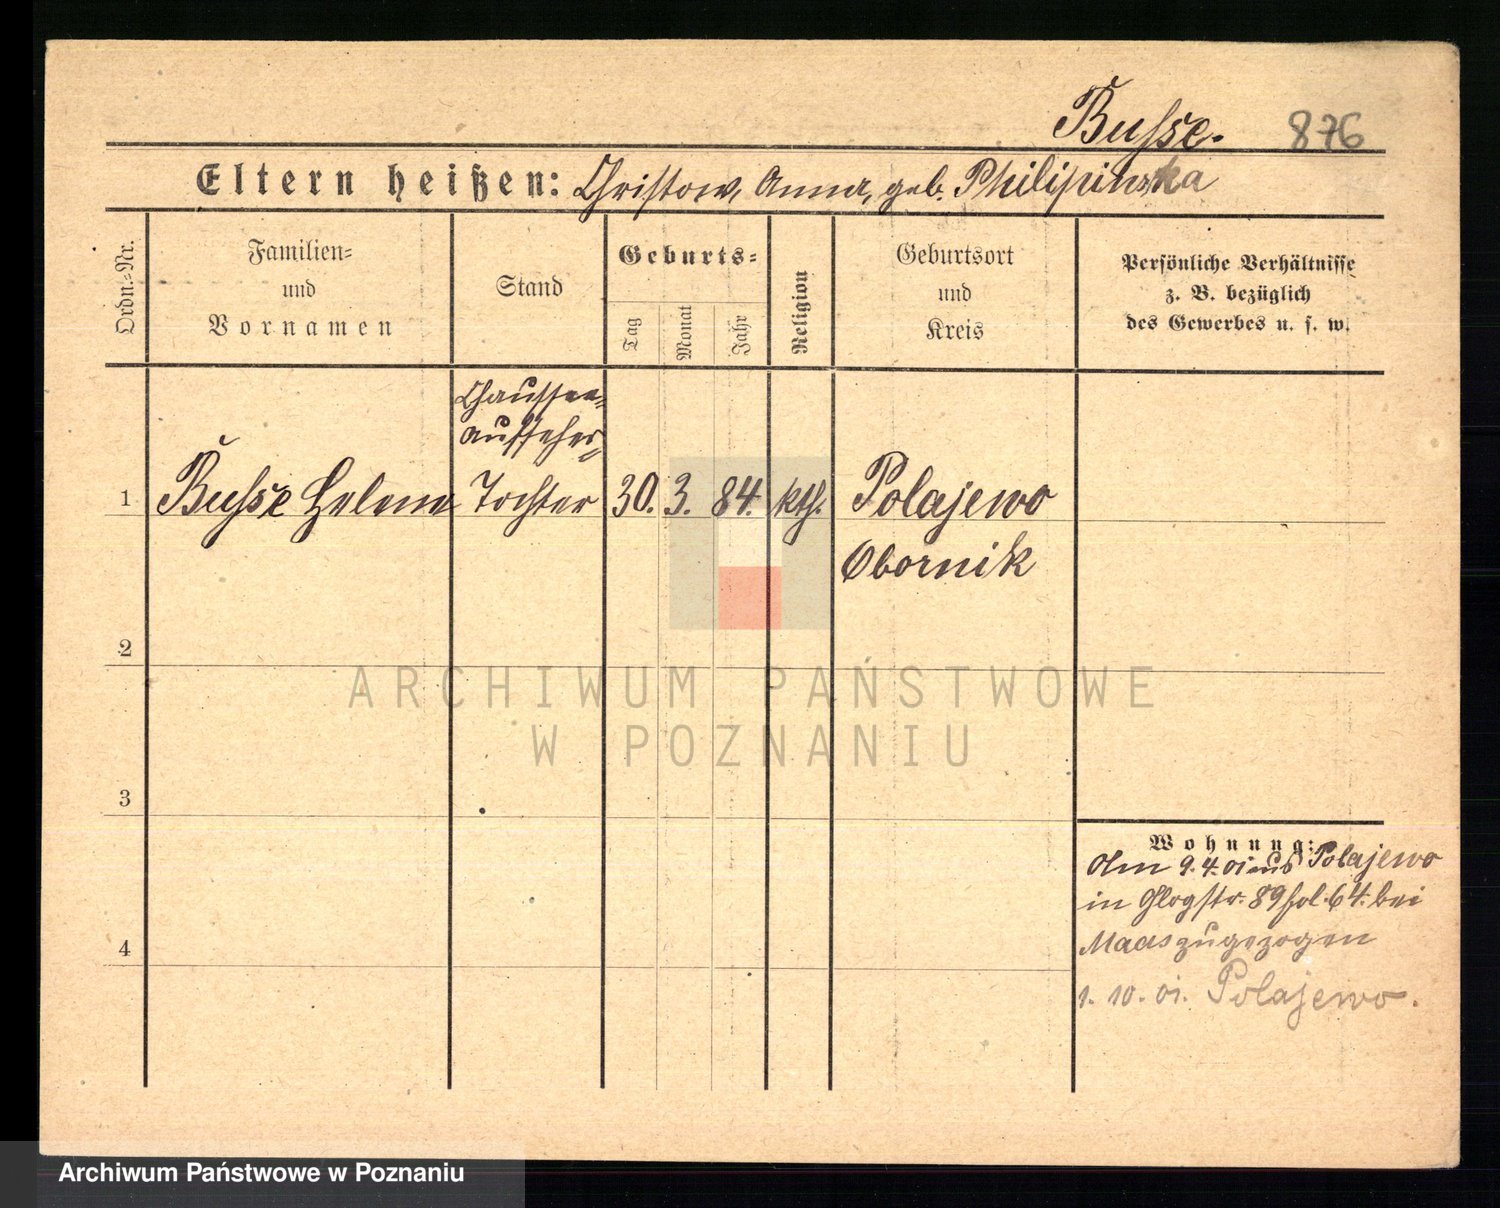 Busse. 876
Eltern heißen: Christow, Anna, geb. Philipinska
Ordn.-Nr.
Familien-
und
Vornamen
Stand
Geburts-
Tag
Monat
Jahr
Religion
Geburtsort
und
Kreis
Persönliche Verhältnisse
z. B. bezüglich
des Gewerbes u. s. w.
Chaussee-
aufseher-
1 Busse Helene Tochter 30. 3. 84. kth. Polajewo
Obornik
2
ARCHIWUM PAŃSTWOWE
W POZNANIU
3
Wohnung:
Am 9.4.01 aus Polajewo
in Glogstr. 89 fol. 64. bei
4
Maas zugezogen
1. 10. 01. Polajewo.
Archiwum Państwowe w Poznaniu